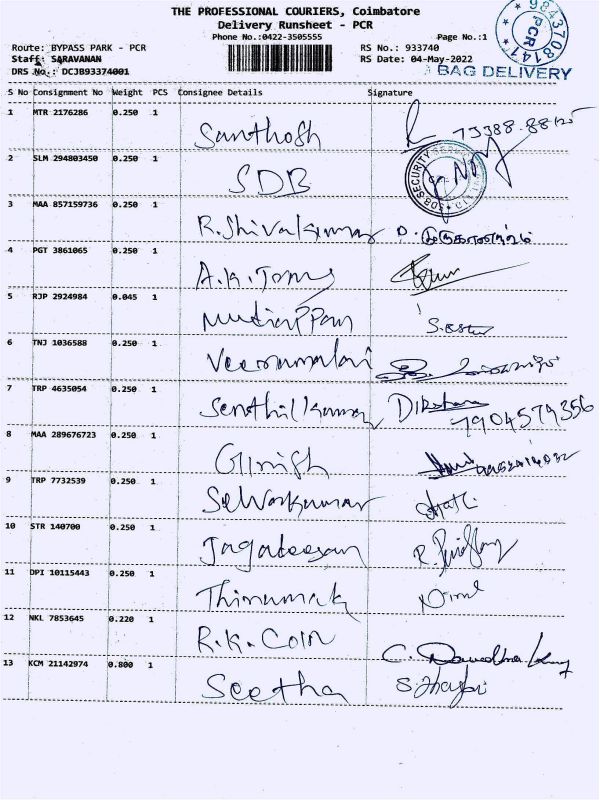 THE PROFESSIONAL COURIERS, Coimbatore
Delivery Runsheet - PCR
Phone No.:0422-3505555
Page No.:1
Route: BYPASS PARK - PCR
RS No.: 933740
Staff: SARAVANAN
RS Date: 04-May-2022
DRS No.: DCJB93374001
9843708141
PCR
BAG DELIVERY
S No Consignment No Weight PCS Consignee Details Signature
1 MTR 2176286 0.250 1 Santhosh 73388-88125
2 SLM 294803450 0.250 1 SDB
SECURITY
3 MAA 857159736 0.250 1 R.Shivakumar
4 PGT 3861065 0.250 1 A.K.Tomy
5 RJP 2924984 0.045 1
6 TNJ 1036588 0.250 1 Veerumalai
7 TRP 4635054 0.250 1 Senthilkumar 7904579356
8 MAA 289676723 0.250 1 Girish
9 TRP 7732539 0.250 1 Selvakumar
10 STR 140700 0.250 1 Jagateesan
11 DPI 10115443 0.250 1
12 NKL 7853645 0.220 1 R.K. Coin
13 KCM 21142974 0.800 1 Seetha